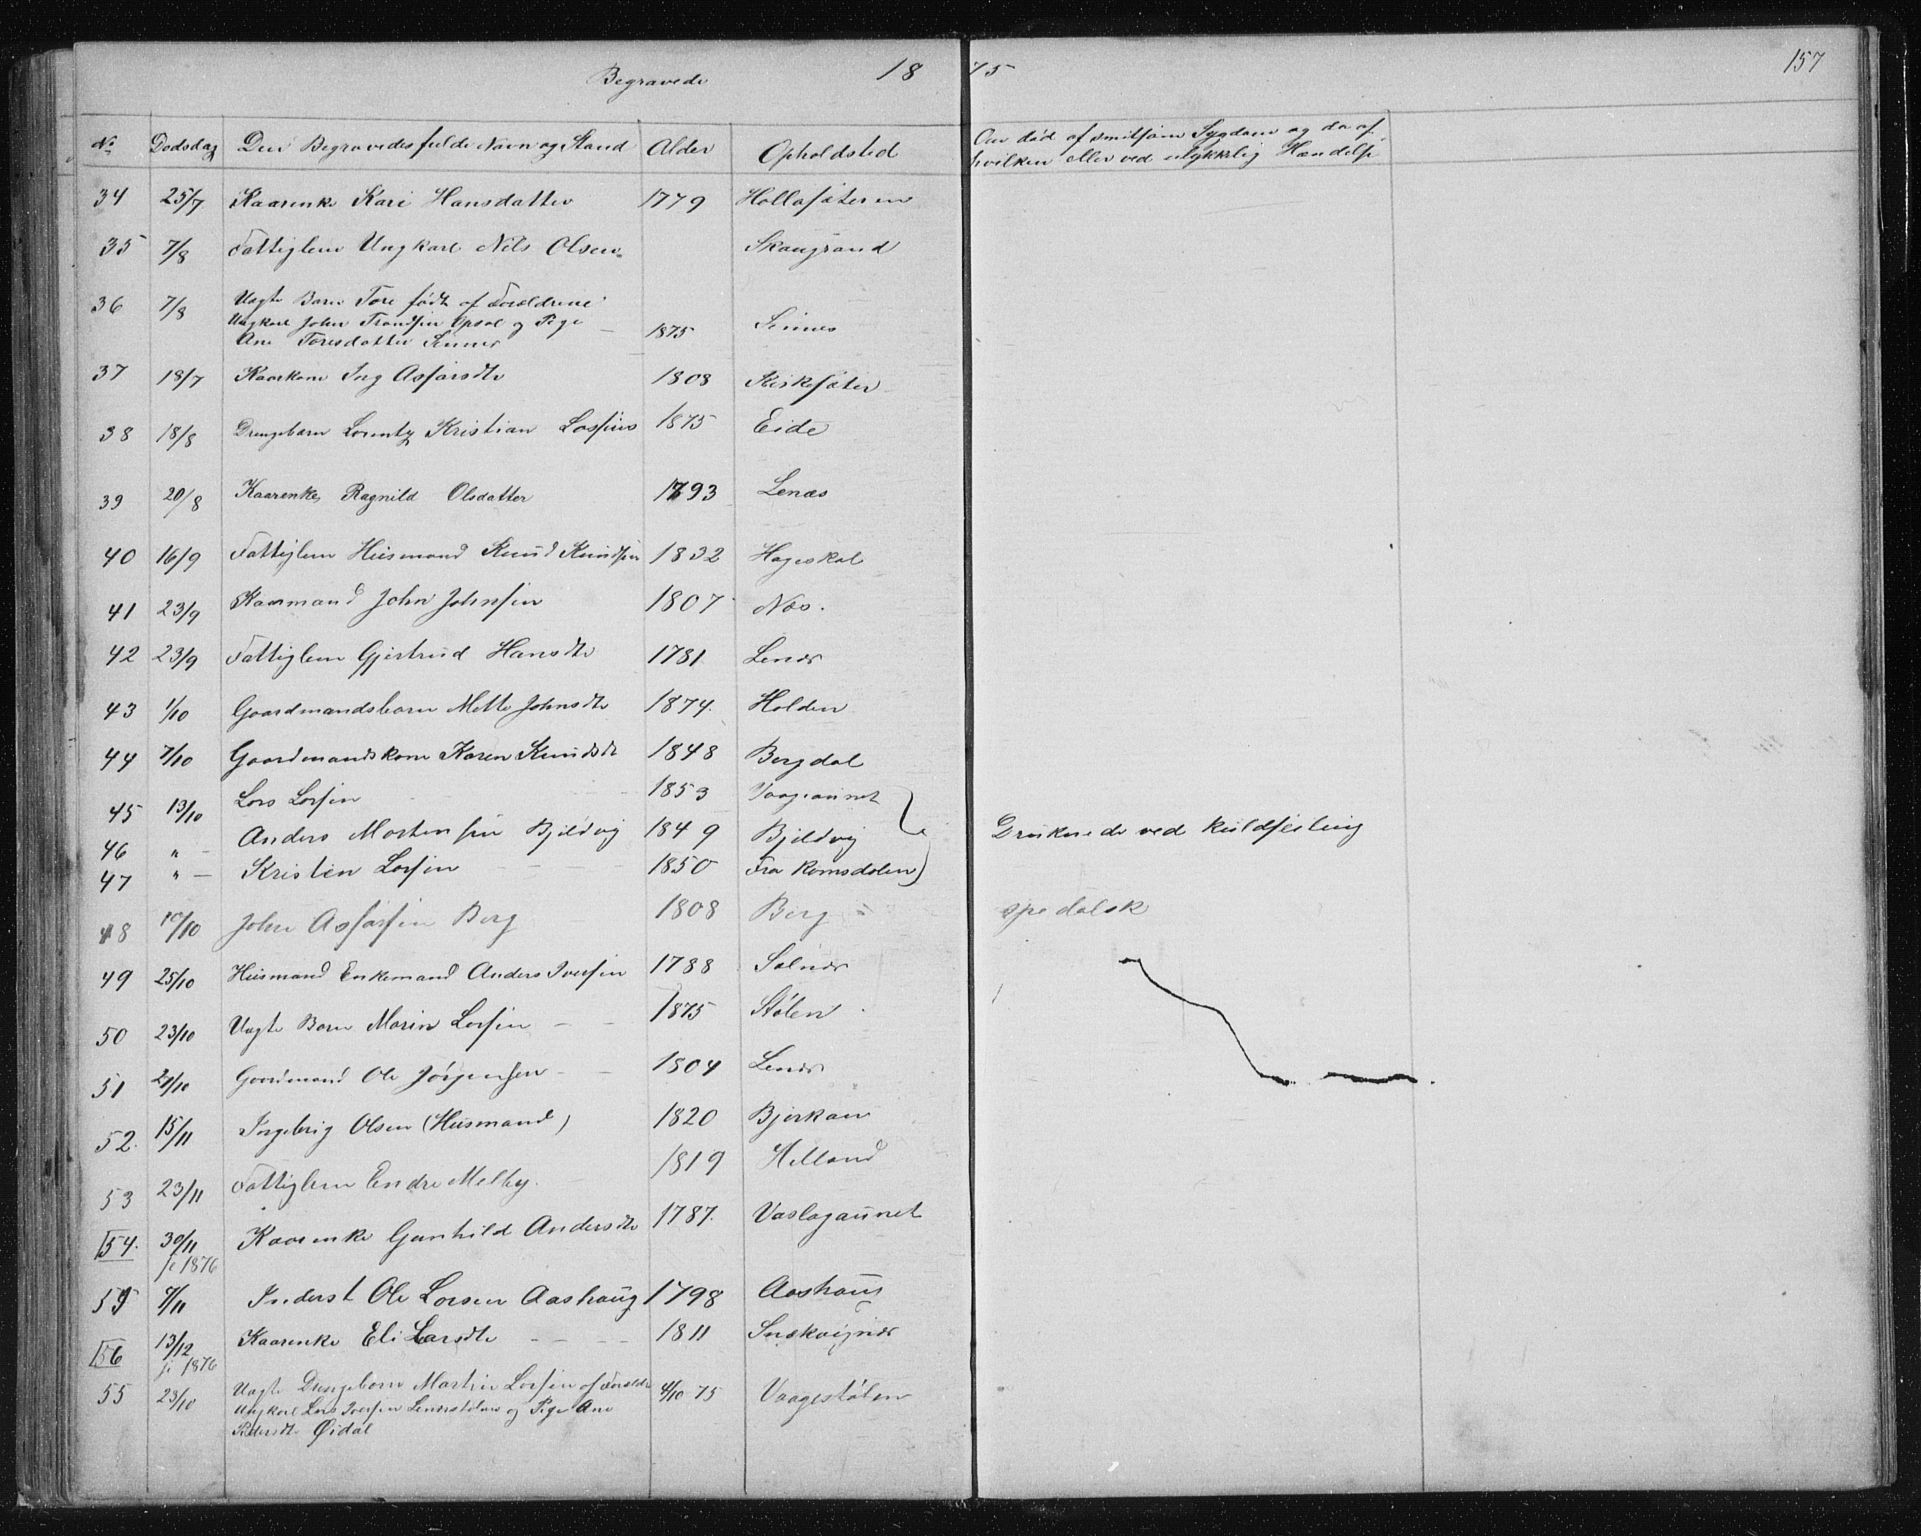 Begravede 1875 157
No Dødsdag Den Begravedes fulde Navn og Stand Alder Opholdsted Om død af smitsom Sygdom og da af
hvilken eller ved ulykkelig Hændelse
34 25/7 Kaarenke Kari Hansdatter 1779 Hollasæteren
35 7/8 Fattiglem Ungkarl Nils Olsen Skaugrand
36 7/8 Uægte Barn Tore født af Forældrene
Ungkarl John Trondsen Opsal og Pige
Ane Toresdatter Sinnes 1875 Sinnes
37 18/7 Kaarkone Ing Asfarsdtr 1808 Kiskesæter
38 18/8 Drengebarn Lorentz Kristian Lassens 1875 Eide
39 20/8 Kaarenke Ragnild Olsdatter 1793 Lenæs
40 16/9 Fattiglem Husmand Knud Knudsen 1832 Hageskal
41 23/9 Kaarmand John Johnsen 1807 Næs.
42 23/9 Fattiglem Gjertrud Hansdtr 1781 Lenæs
43 1/10 Gaardmandsbarn Mette Johnsdtr 1874. Holden
44 7/10 Gaardmandskone Karen Knudsdt 1848 Bergdal
45 13/10 Lars Larsen 1853 Vaageaunet
46 " - Anders Mortensen Bjeldvig 1849 Bjeldvig Druknede ved Kuldseiling
47 " - Kristen Larsen 1850 Fra Romsdalen
48 10/10 John Asfarsen Berg 1808 Berg spedalsk
49 25/10 Husmand Enkemand Anders Iversen 1788 Solnæs
50 23/10 Uægte Barn Marin Larsen 1875 Stølen
51 21/10 Gaardmand Ole Jörgensen 1804 Lenæs
52. 15/11 Ingebrig Olsen (Husmand) 1820 Bjerkan
53 23/11 Fattiglem Endre Melby. 1819 Helland
54. 30/11 Kaarenke Gunhild Andersdtr 1787. Vaslagaunet
se 1876
55 9/11 Inderst Ole Larsen Aashaug 1798 Aashaug
56 13/12 Kaarenke Eli Larsdtr 1811 Snekvignæs
se 1876
55 23/10 Uægte Drengebarn Martin Larsen af Forældr 4/10 75 Vaagestølen
Ungkarl Lars Iversen Lenesstølen og Pige Ane
Pedersdtr Øidal